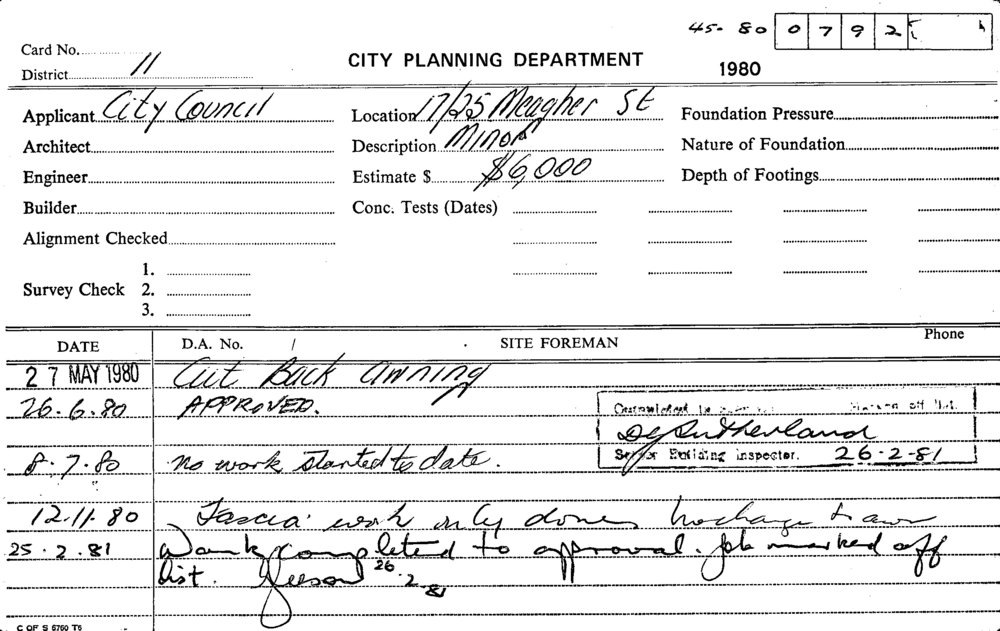 45- 80 0 7 9 2
Card No.
District 11
CITY PLANNING DEPARTMENT
1980
Applicant City Council
Location 17/25 Meagher St
Foundation Pressure
Architect
Description Minor
Nature of Foundation
Engineer
Estimate $ $6,000
Depth of Footings
Builder
Conc. Tests (Dates)
Alignment Checked
1.
Survey Check 2.
3.
DATE D.A. No. SITE FOREMAN Phone
27 MAY 1980 Cut Back awning
26.6.80 APPROVED.
DJ Sutherland
8.7.80 no work started to date.
Building Inspector. 26-2-81
12.11.80 Fascia work only done,
25.2.81 Work completed to approval. Job marked off
list. 26.2.81
C OF S 6760 T6